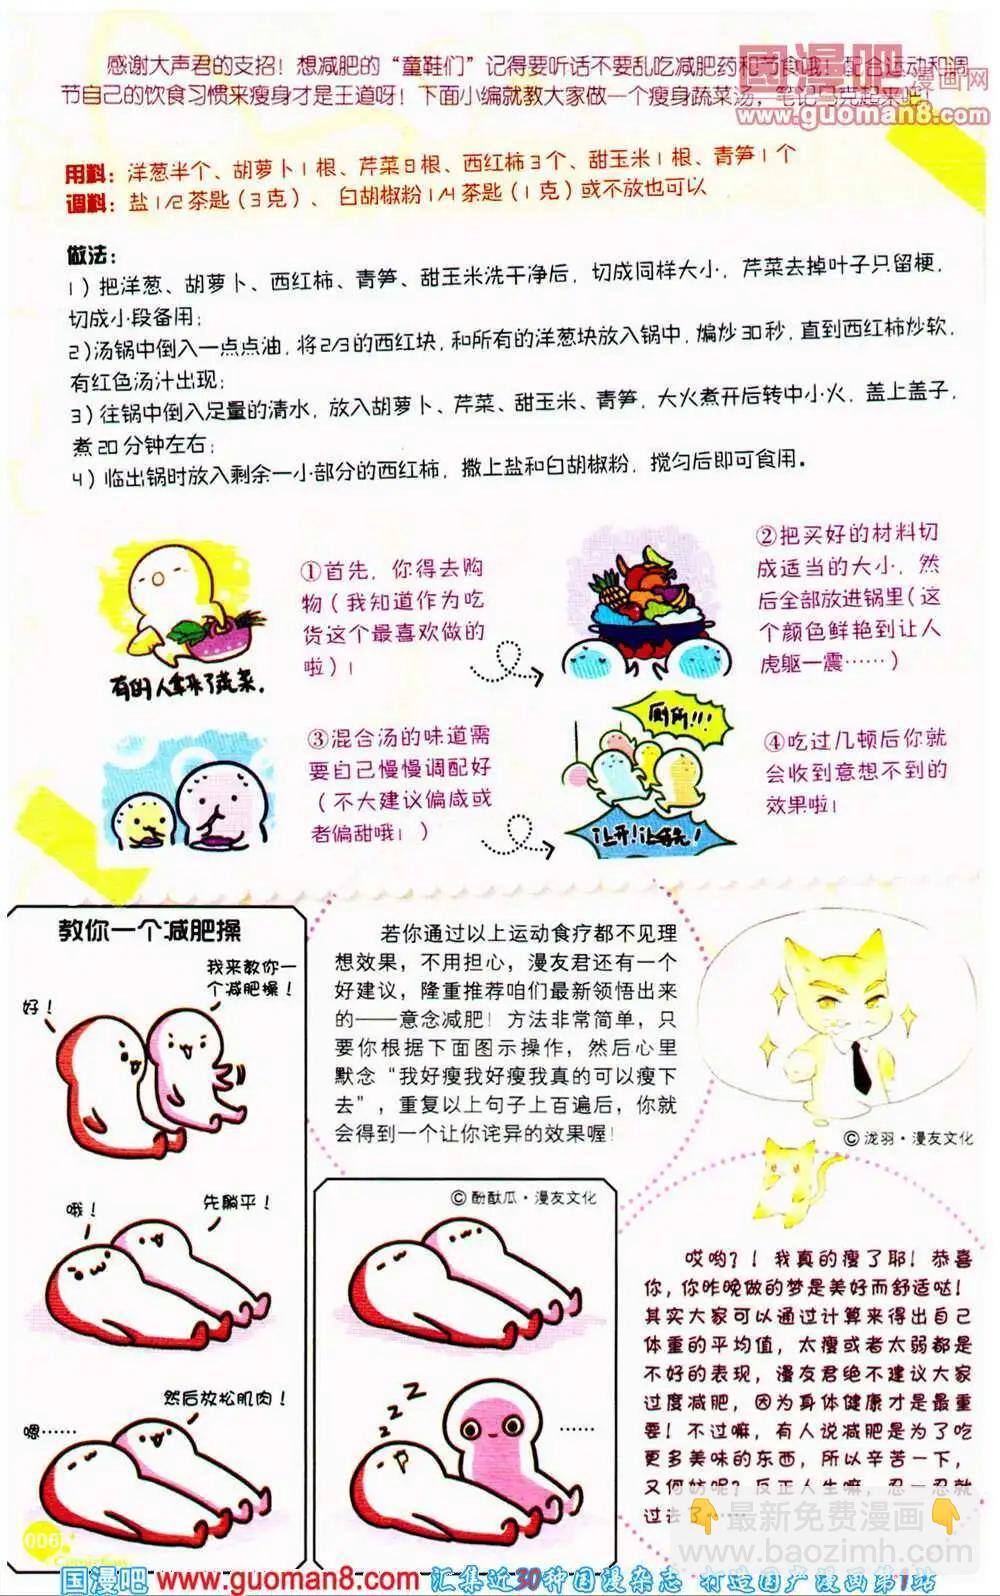 感谢大声君的支招！想减肥的“童鞋们”记得要听话不要乱吃减肥药和节食哦！配合运动和调
节自己的饮食习惯来瘦身才是王道呀！下面小编就教大家做一个瘦身蔬菜汤，笔记马克起来吧！
國漫吧
漫画网
www.guoman8.com
用料：洋葱半个、胡萝卜1根、芹菜8根、西红柿3个、甜玉米1根、青笋1个
调料：盐1/2茶匙（3克）、白胡椒粉1/4茶匙（1克）或不放也可以
做法：
1）把洋葱、胡萝卜、西红柿、青笋、甜玉米洗干净后，切成同样大小，芹菜去掉叶子只留梗，
切成小段备用；
2）汤锅中倒入一点点油，将2/3的西红块，和所有的洋葱块放入锅中，煸炒30秒，直到西红柿炒软，
有红色汤汁出现；
3）往锅中倒入足量的清水，放入胡萝卜、芹菜、甜玉米、青笋，大火煮开后转中小火，盖上盖子，
煮20分钟左右；
4）临出锅时放入剩余一小部分的西红柿，撒上盐和白胡椒粉，搅匀后即可食用。
①首先，你得去购
物（我知道作为吃
货这个最喜欢做的
啦）！
有的人拿来了蔬菜。
②把买好的材料切
成适当的大小，然
后全部放进锅里（这
个颜色鲜艳到让人
虎躯一震……）
③混合汤的味道需
要自己慢慢调配好
（不大建议偏咸或
者偏甜哦！）
厕所!!!
让开!让我先!
④吃过几顿后你就
会收到意想不到的
效果啦！
教你一个减肥操
我来教你一
个减肥操！
好！
哦！
先躺平！
嗯……
然后放松肌肉！
若你通过以上运动食疗都不见理
想效果，不用担心，漫友君还有一个
好建议，隆重推荐咱们最新领悟出来
的——意念减肥！方法非常简单，只
要你根据下面图示操作，然后心里
默念“我好瘦我好瘦我真的可以瘦下
去”，重复以上句子上百遍后，你就
会得到一个让你诧异的效果喔！
©泷羽·漫友文化
©酚酞瓜·漫友文化
zzz
……
哎哟？！我真的瘦了耶！恭喜
你，你昨晚做的梦是美好而舒适哒！
其实大家可以通过计算来得出自己
体重的平均值，太瘦或者太弱都是
不好的表现，漫友君绝不建议大家
过度减肥，因为身体健康才是最重
要！不过嘛，有人说减肥是为了吃
更多美味的东西，所以辛苦一下，
又何妨呢？反正人生嘛，忍一忍就
过去了……
最新免费漫画
www.baozimh.com
006
Comicfans
国漫吧 www.guoman8.com 汇集近30种国漫杂志 打造国产漫画第1站